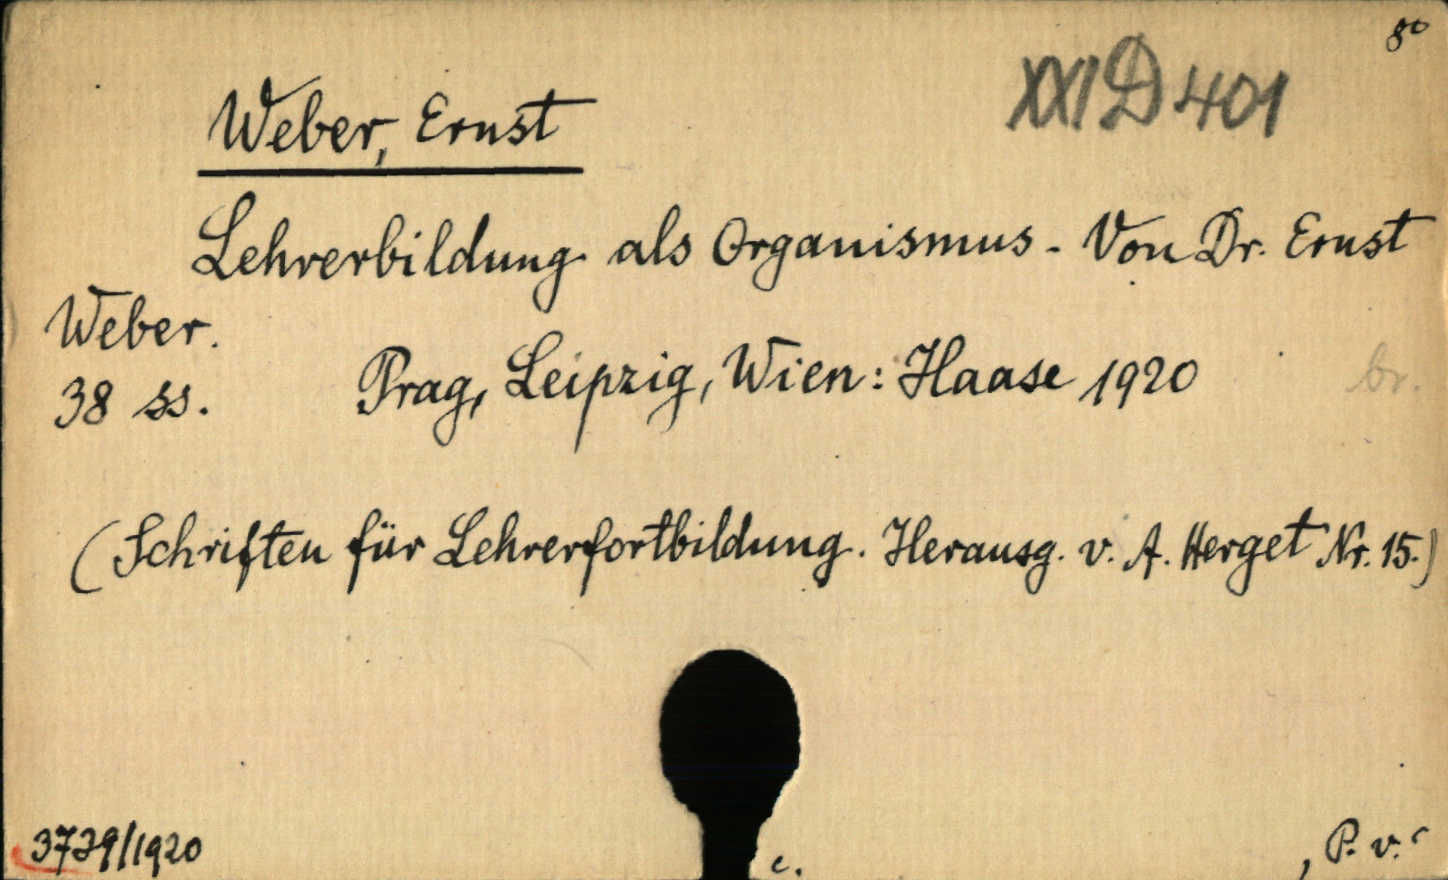 8°
XXI D 401
Weber, Ernst
Lehrerbildung als Organismus - Von Dr. Ernst
Weber.
38 ss. Prag, Leipzig, Wien: Haase 1920
br.
(Schriften für Lehrerfortbildung. Herausg. v. A. Herget Nr. 15.)
3739/1920
c.
P. v.